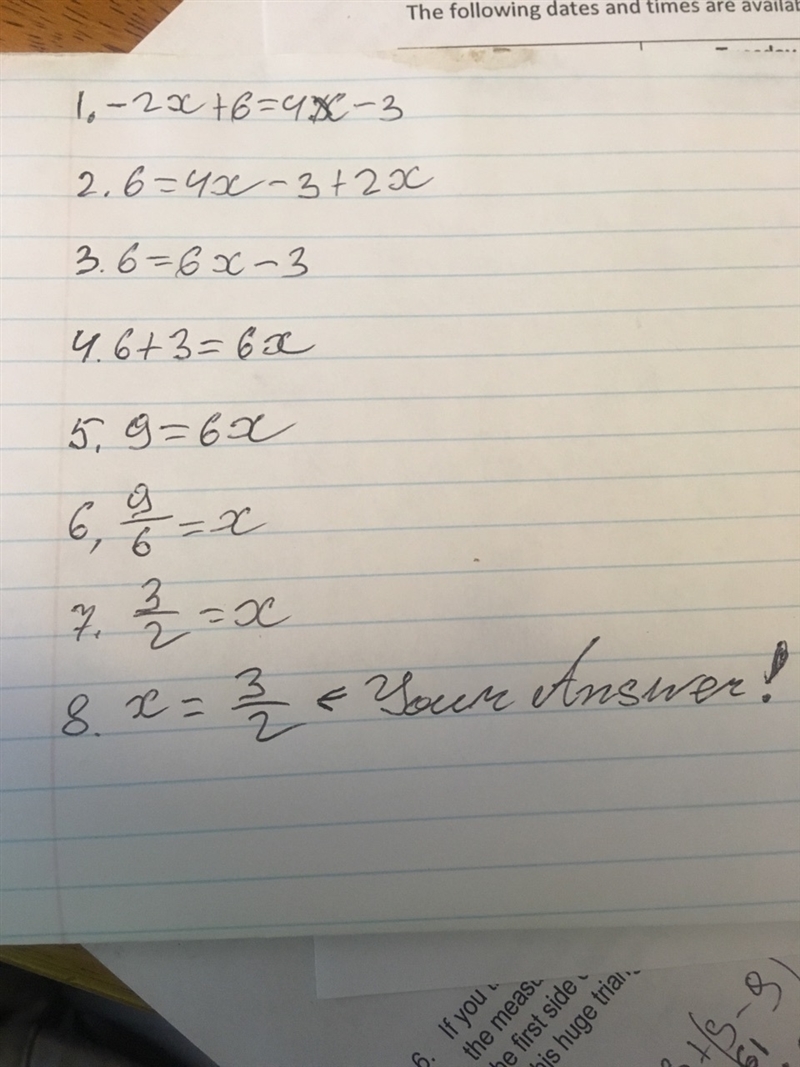 The following dates and times are availab
1. -2x+6=4x-3
2. 6=4x-3+2x
3. 6=6x-3
4. 6+3=6x
5. 9=6x
6, 9/6=x
7. 3/2=x
8. x=3/2 < Your Answer!
6. If you
the measu
the first side
his huge trian